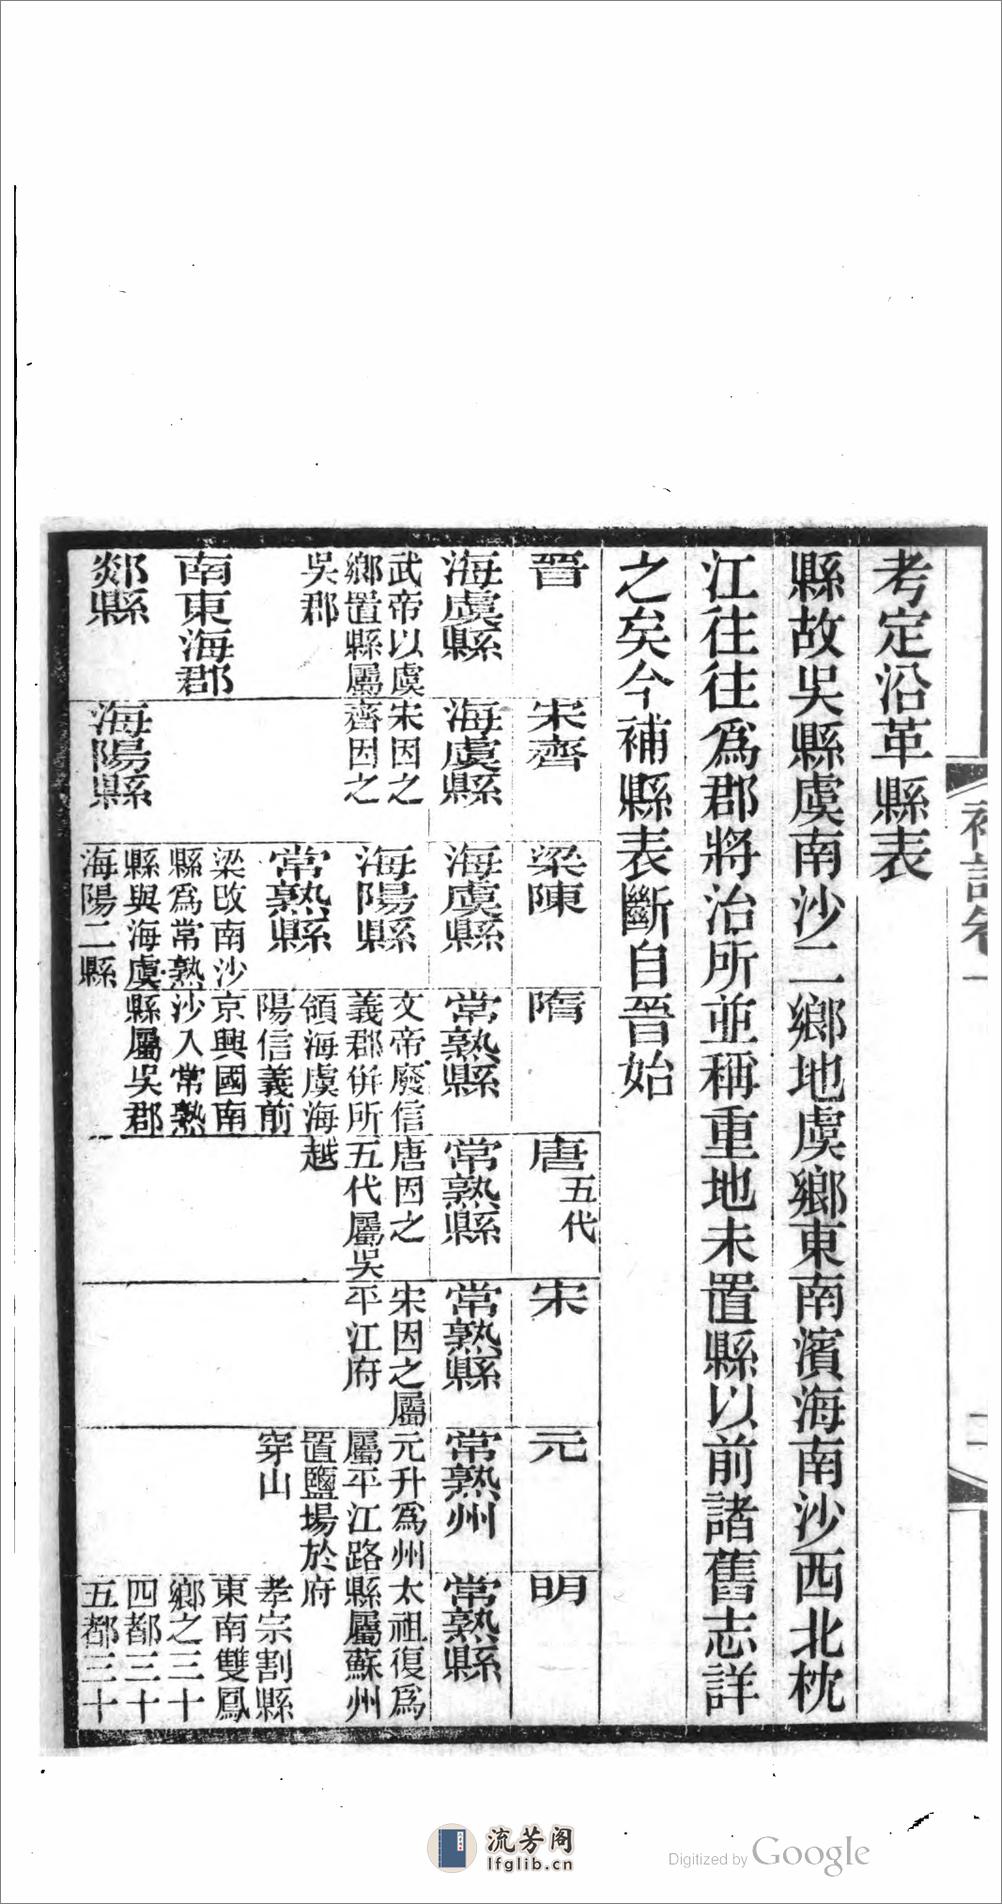 考定沿革縣表
縣故吳縣虞南沙二鄉地虞鄉東南濱海南沙西北枕
江往往爲郡將治所並稱重地未置縣以前諸舊志詳
之矣今補縣表斷自晉始
晉
海虞縣
武帝以虞
鄉置縣屬
吳郡
南東海郡
郯縣
宋齊
海虞縣
宋因之
齊因之
海陽縣
梁陳
海虞縣
海陽縣
常熟縣
梁改南沙
縣爲常熟
縣與海虞
海陽二縣
隋
常熟縣
文帝廢信
義郡併所
領海虞海
陽信義前
京興國南
沙入常熟
縣屬吳郡
唐五代
常熟縣
唐因之
五代屬吳
越
宋
常熟縣
宋因之屬
平江府
元
常熟州
元升爲州
屬平江路
置鹽場於
穿山
明
常熟縣
太祖復爲
縣屬蘇州
府
孝宗割縣
東南雙鳳
鄉之三十
四都三十
五都三十
流芳阁
lfglib.cn
Digitized by Google